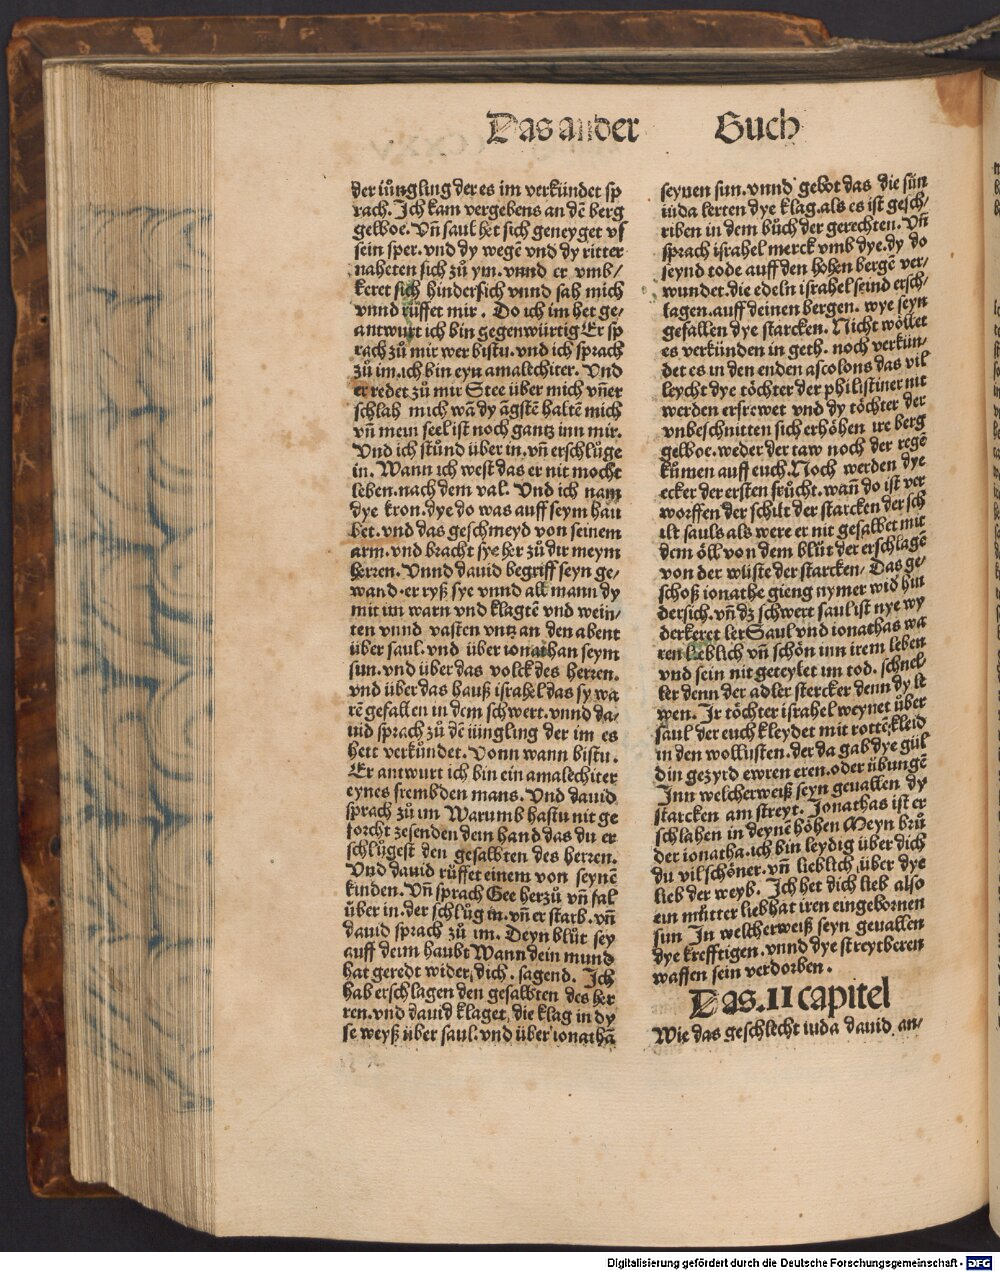 Das ander Buch
der iüngling der es im verkündet sp
rach. Ich kam vergebens an dē berg
gelboe. Vñ saul het sich geneyget vf
sein sper. vnd dy wegē vnd dy ritter
naheten sich zů ym. vnnd er vmb/
keret sich hindersich vnnd sah mich
vnnd rüffet mir. Do ich im het ge/
antwurt ich bin gegenwürtig Er sp
rach zů mir wer bistu. vnd ich sprach
zů im. ich bin eyn amalechiter. Vnd
er redet zů mir Stee über mich vñer
schlah mich wā dy āgstē haltē mich
vñ mein seel ist noch gantz inn mir.
Vnd ich stůnd über in. vñ erschlůge
in. Wann ich west das er nit mocht
leben. nach dem val. Vnd ich nam
dye kron. dye do was auff seym hau
bet. vnd das geschmeyd von seinem
arm. vnd bracht sye her zů dir meym
herren. Vnnd dauid begriff seyn ge/
wand. er ryß sye vnnd all mann dy
mit im warn vnd klagtē vnd wein/
ten vnnd vasten vntz an den abent
über saul. vnd über ionathan seym
sun. vnd über das volck des herren.
vnd über das hauß israhel das sy wa
rē gefallen in dem schwert. vnnd da/
uid sprach zů dē iüngling der im es
hett verkündet. Vonn wann bistu.
Er antwurt ich bin ein amalechiter
eynes frembden mans. Vnd dauid
sprach zů im Warumb hastu nit ge
forcht zesenden dein hand das du er
schlügest den gesalbten des herren.
Vnd dauid rüffet einem von seynē
kinden. Vñ sprach Gee herzů vñ fal
über in. der schlůg in. vñ er starb. vñ
dauid sprach zů im. Deyn blůt sey
auff deim haubt Wann dein mund
hat geredt wider dich. sagend. Ich
hab erschlagen den gesalbten des her
ren. vnd dauid klaget, die klag in dy
se weyß über saul. vnd über ionathā
seynen sun. vnnd gebot das die sün
iuda lerten dye klag. als es ist gesch/
riben in dem bůch der gerechten. Vñ
sprach israhel merck vmb dye. dy do
seynd tode auff den hohen bergē ver/
wundet. die edeln israhel seind ersch/
lagen. auff deinen bergen. wye seyn
gefallen dye starcken. Nicht wöllet
es verkünden in geth. noch verkün/
det es in den enden ascolons das vil
leycht dye töchter der philistiner nit
werden erfrewet vnd dy töchter der
vnbeschnitten sich erhöhen ire berg
gelboe. weder der taw noch der regē
kůmen auff euch. Noch werden dye
ecker der ersten frücht. wañ do ist ver
worffen der schilt der starcken der sch
ilt sauls als were er nit gesalbet mit
dem öll von dem blůt der erschlagē
von der wüste der starcken/ Das ge/
schoß ionathe gieng nymer wid hin
dersich. vñ dz schwert saul ist nye wy
derkeret ler Saul vnd ionathas wa
ren lieblich vñ schön inn irem leben
vnd sein nit geteylet im tod. schnel/
ler denn der adler stercker denn dy le
wen. Ir töchter israhel weynet über
saul der euch kleydet mit rottē kleid
in den wollusten. der da gab dye gül
din gezyrd ewren eren. oder übungē
Inn welcherweiß seyn geuallen dy
starcken am streyt. Jonathas ist er
schlahen in deynē höhen Meyn brů
der ionatha. ich bin leydig über dich
du vil schöner. vñ lieblich, über dye
lieb der weyb. Ich het dich lieb also
ein mütter lieb hat iren eingebornen
sun In welcherweiß seyn geuallen
dye krefftigen. vnnd dye streytberen
waffen sein verdorben.
Das. II capitel
Wie das geschlecht iuda dauid an/
Digitalisierung gefördert durch die Deutsche Forschungsgemeinschaft - DFG